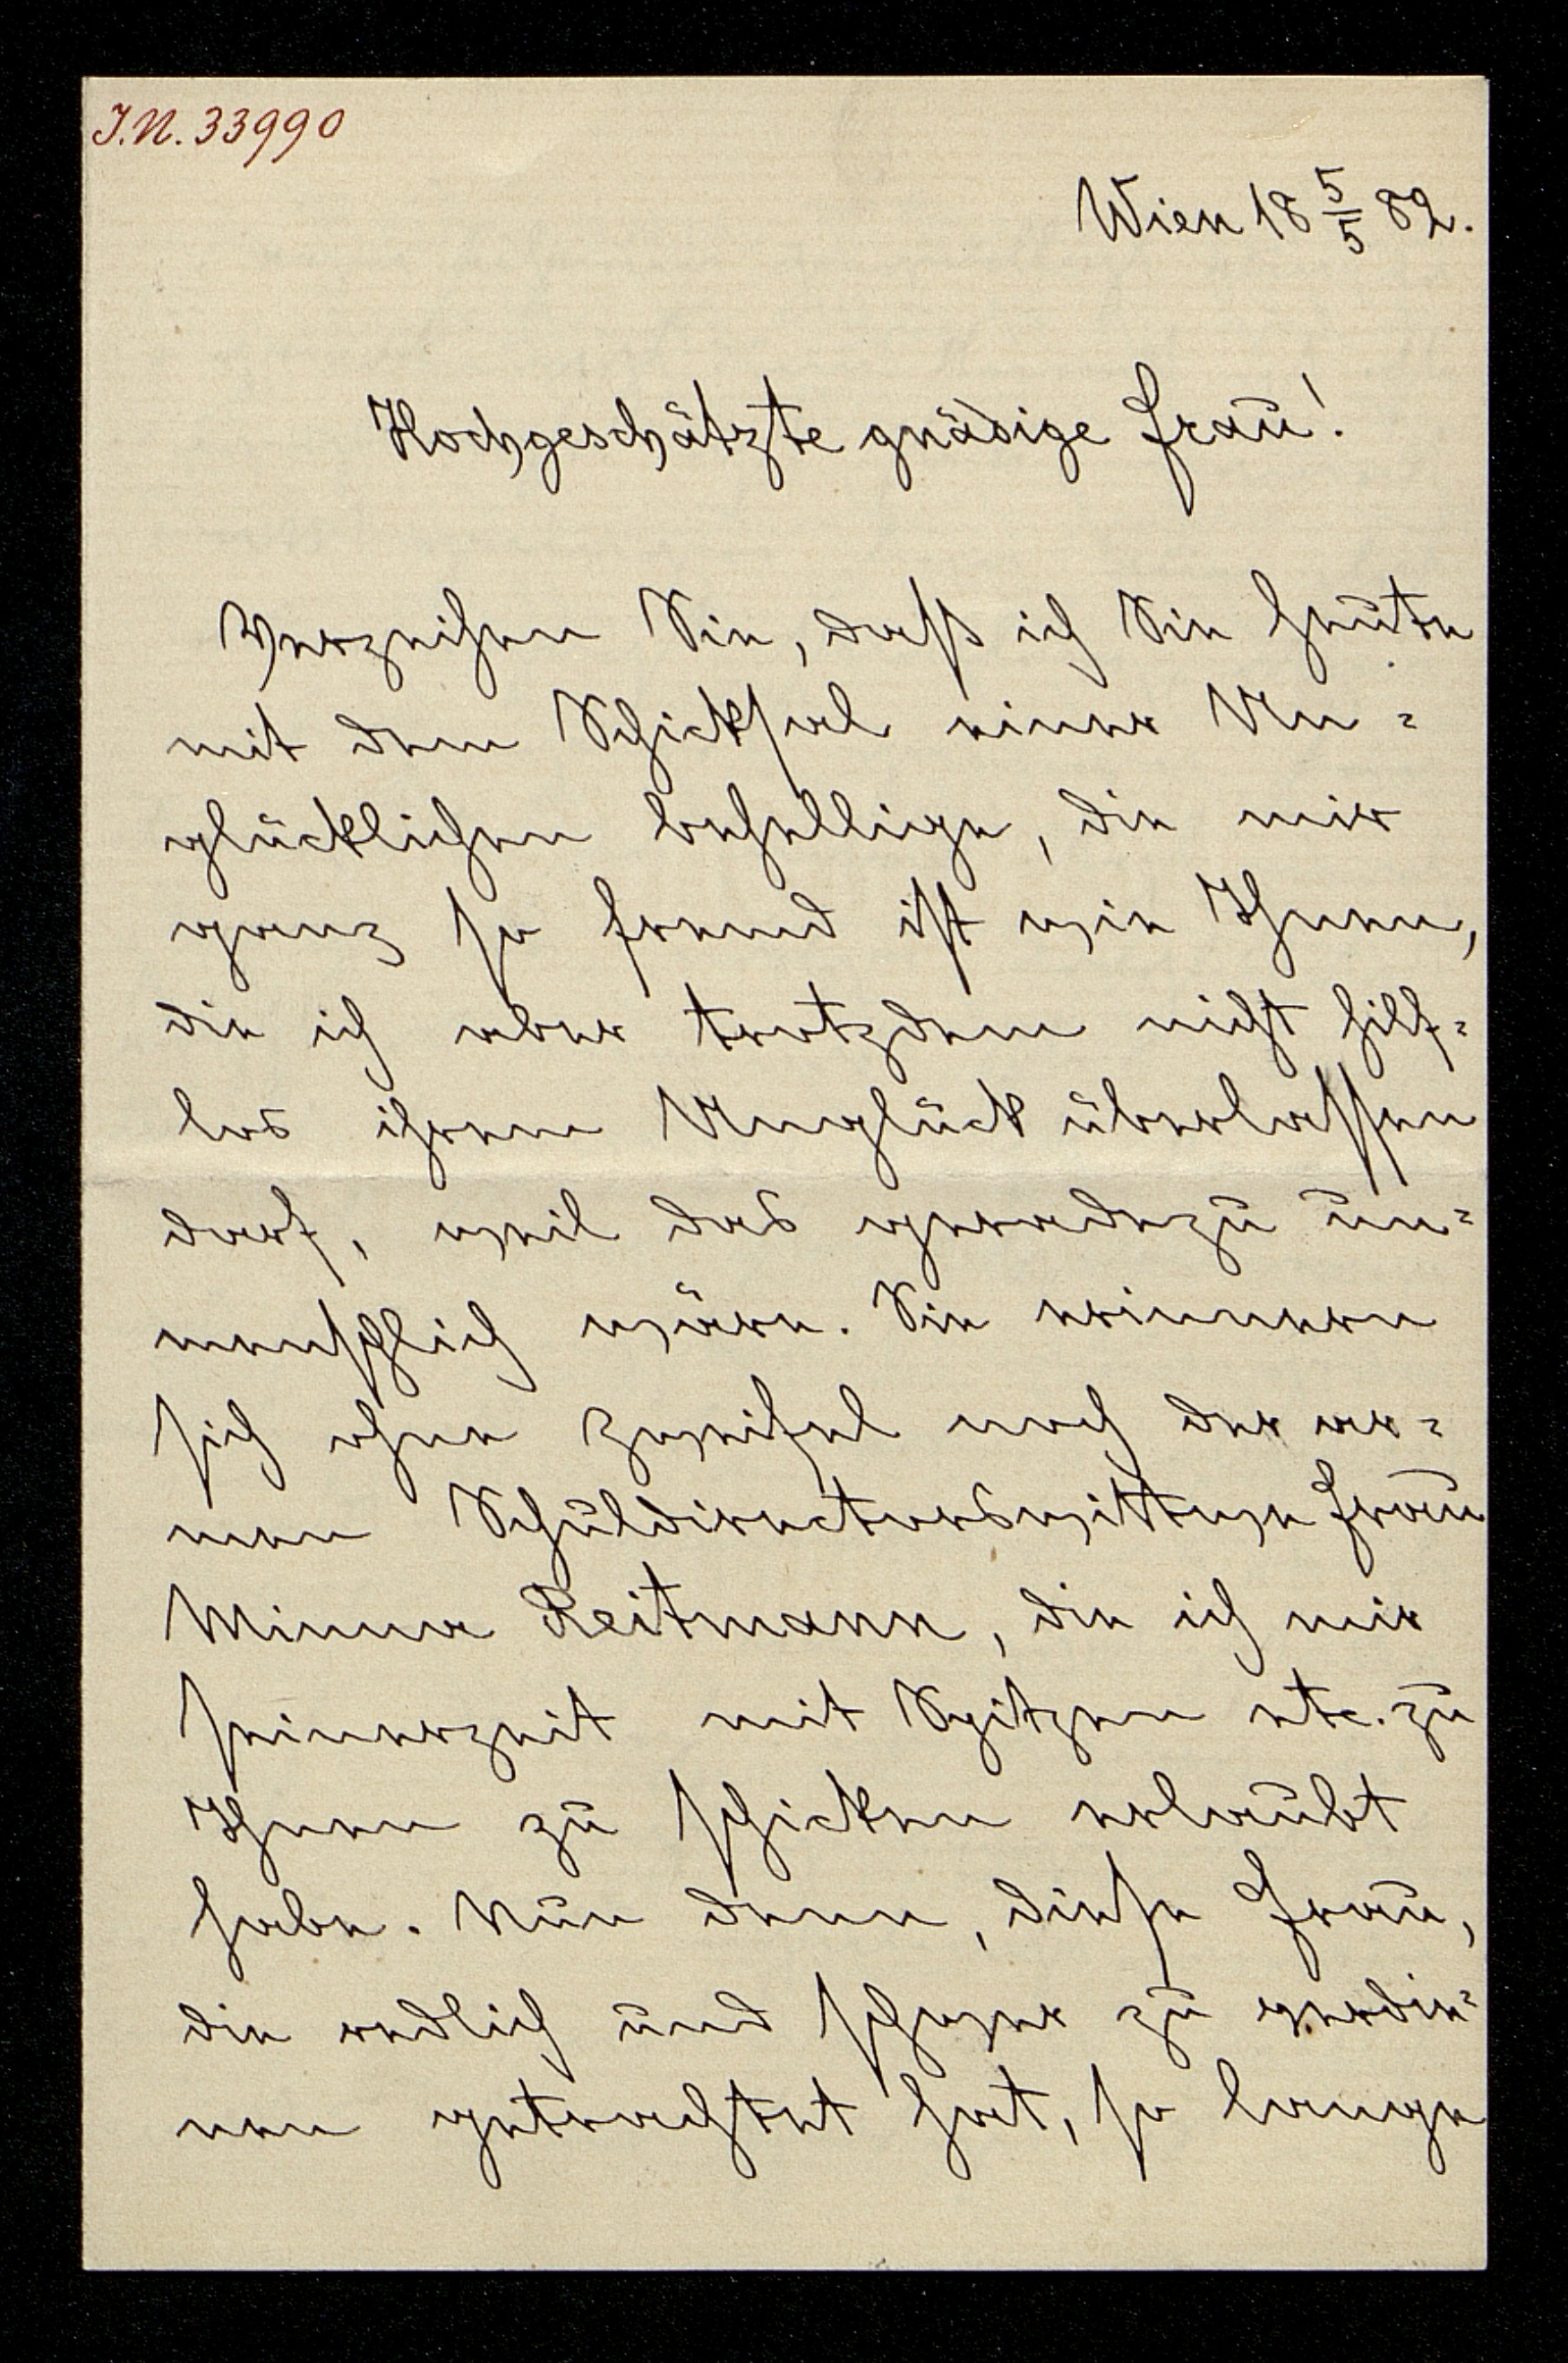 J.N. 33990
Wien 18 5/5 82.
Hochgeschätzte gnädige Frau!
Verzeihen Sie, daß ich Sie heute
mit dem Schicksal einer Un=
glücklichen behellige, die mir
ganz so fremd ist wie Ihnen,
die ich aber trotzdem nicht hilf=
los ihrem Unglück überlassen
darf, weil das geradezu un=
menschlich wäre. Sie erinnern
sich ohne Zweifel noch der ar=
men Schuldirectorswittwe Frau
Minna Reitmann, die ich mir
seinerzeit mit Spitzen etc. zu
Ihnen zu schicken erlaubt
habe. Nun denn, diese Frau,
die redlich und schwer zu verdie=
nen getrachtet hat, so lange